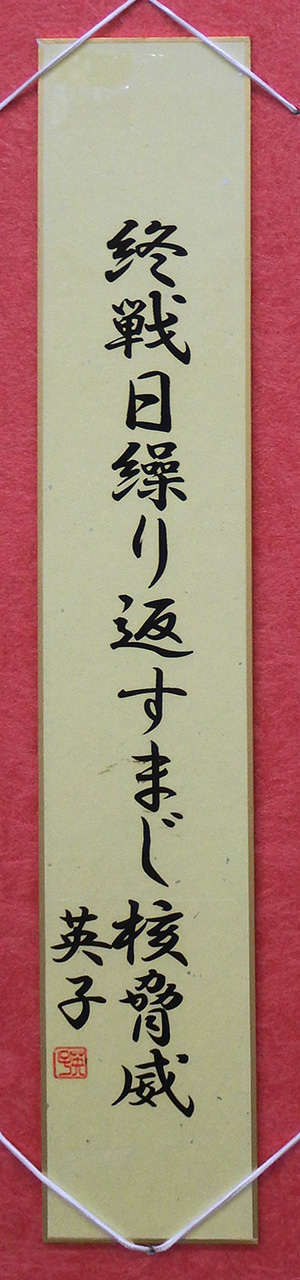 終戦日繰り返すまじ核脅威
英子